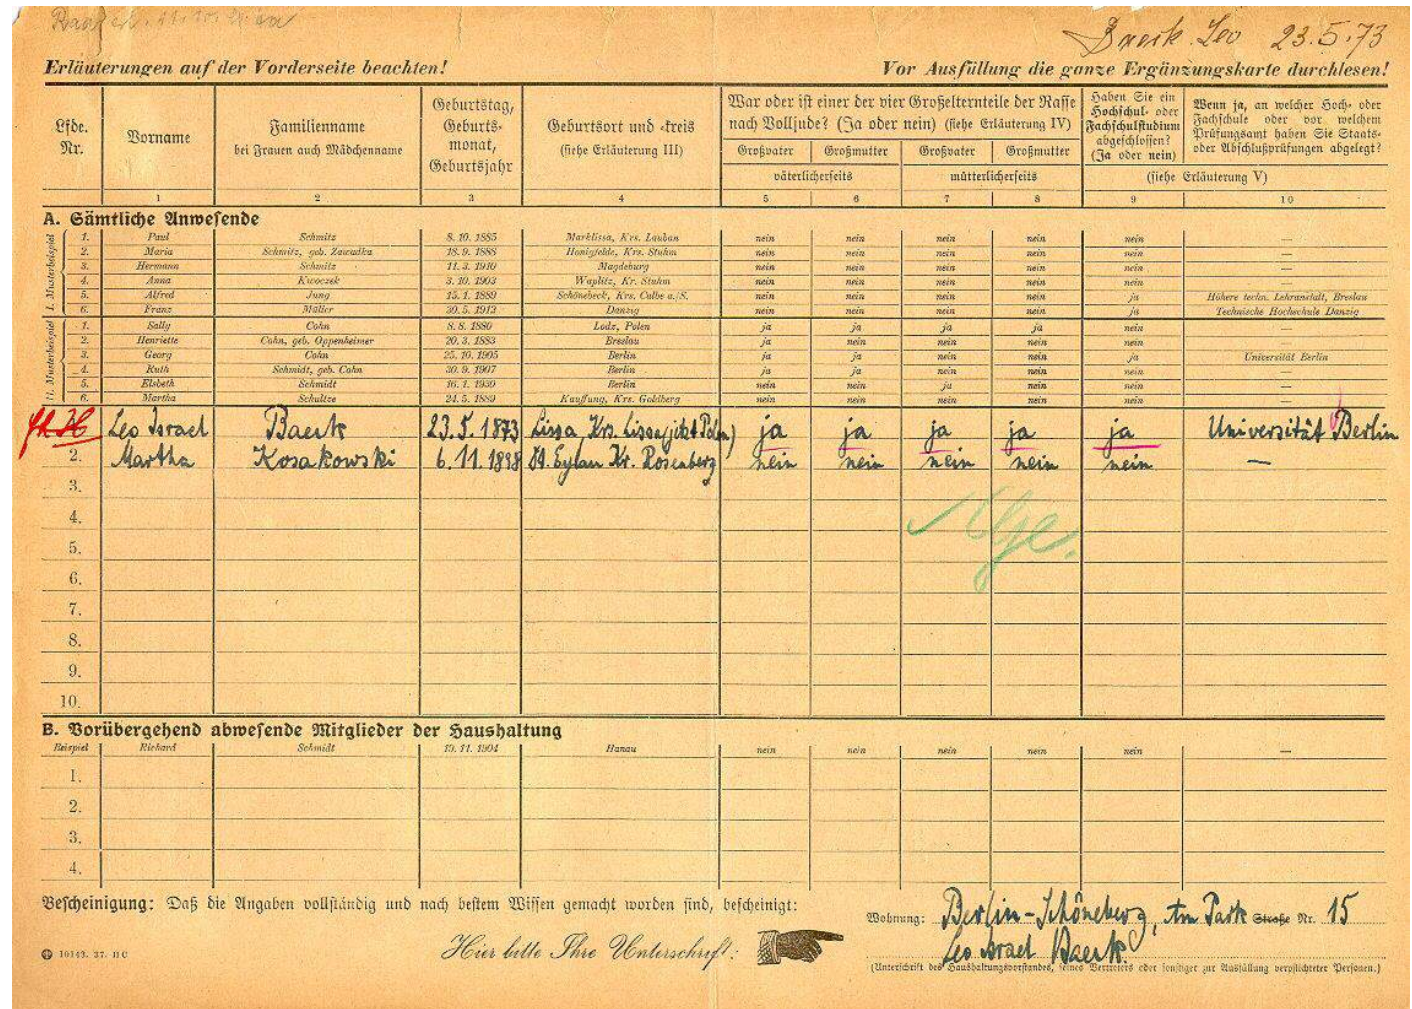 Baeck Leo 23.5.73
Erläuterungen auf der Vorderseite beachten!
Vor Ausfüllung die ganze Ergänzungskarte durchlesen!
Lfde. Nr.
Vorname
Familienname
bei Frauen auch Mädchenname
Geburtstag, Geburts-monat, Geburtsjahr
Geburtsort und -kreis
(siehe Erläuterung III)
War oder ist einer der vier Großelternteile der Rasse
nach Volljude? (Ja oder nein) (siehe Erläuterung IV)
Großvater Großmutter Großvater Großmutter
väterlicherseits mütterlicherseits
Haben Sie ein
Hochschul- oder
Fachschulstudium
abgeschlossen?
(Ja oder nein)
Wenn ja, an welcher Hoch- oder
Fachschule oder vor welchem
Prüfungsamt haben Sie Staats-
oder Abschlußprüfungen abgelegt?
(siehe Erläuterung V)
1 2 3 4 5 6 7 8 9 10
A. Sämtliche Anwesende
I. Musterbeispiel
1. Paul Schmitz 8. 10. 1885 Marklissa, Krs. Lauban nein nein nein nein nein —
2. Maria Schmitz, geb. Zawadka 18. 9. 1888 Honigfelde, Krs. Stuhm nein nein nein nein nein —
3. Hermann Schmitz 11. 3. 1910 Magdeburg nein nein nein nein nein —
4. Anna Kwoczek 3. 10. 1903 Waplitz, Kr. Stuhm nein nein nein nein nein —
5. Alfred Jung 15. 1. 1889 Schönebeck, Krs. Calbe a./S. nein nein nein nein ja Höhere techn. Lehranstalt, Breslau
6. Franz Müller 30. 5. 1913 Danzig nein nein nein nein ja Technische Hochschule Danzig
II. Musterbeispiel
1. Sally Cohn 8. 8. 1880 Lodz, Polen ja ja ja ja nein —
2. Henriette Cohn, geb. Oppenheimer 20. 3. 1883 Breslau ja ja nein nein nein —
3. Georg Cohn 25. 10. 1905 Berlin ja ja nein nein ja Universität Berlin
4. Ruth Schmidt, geb. Cohn 30. 9. 1907 Berlin ja ja nein nein nein —
5. Elsbeth Schmidt 16. 1. 1939 Berlin nein nein ja nein nein —
6. Martha Schultze 24. 5. 1889 Kauffung, Krs. Goldberg nein nein nein nein nein —
Leo Israel Baeck 23.5.1873 Lissa, Krs. Lissa (jetzt Polen) ja ja ja ja ja Universität Berlin
2. Martha Kosakowski 6.11.1898 Dt. Eylau Kr. Rosenberg nein nein nein nein nein —
3.
4.
5.
6.
7.
8.
9.
10.
B. Vorübergehend abwesende Mitglieder der Haushaltung
Beispiel Richard Schmidt 19. 11. 1904 Hanau nein nein nein nein nein —
1.
2.
3.
4.
Bescheinigung: Daß die Angaben vollständig und nach bestem Wissen gemacht worden sind, bescheinigt:
Wohnung: Berlin-Schöneberg, Am Park Straße Nr. 15
Hier bitte Ihre Unterschrift:
Leo Israel Baeck.
(Unterschrift des Haushaltungsvorstandes, seines Vertreters oder sonstiger zur Ausfüllung verpflichteter Personen.)
10143. 37. II C